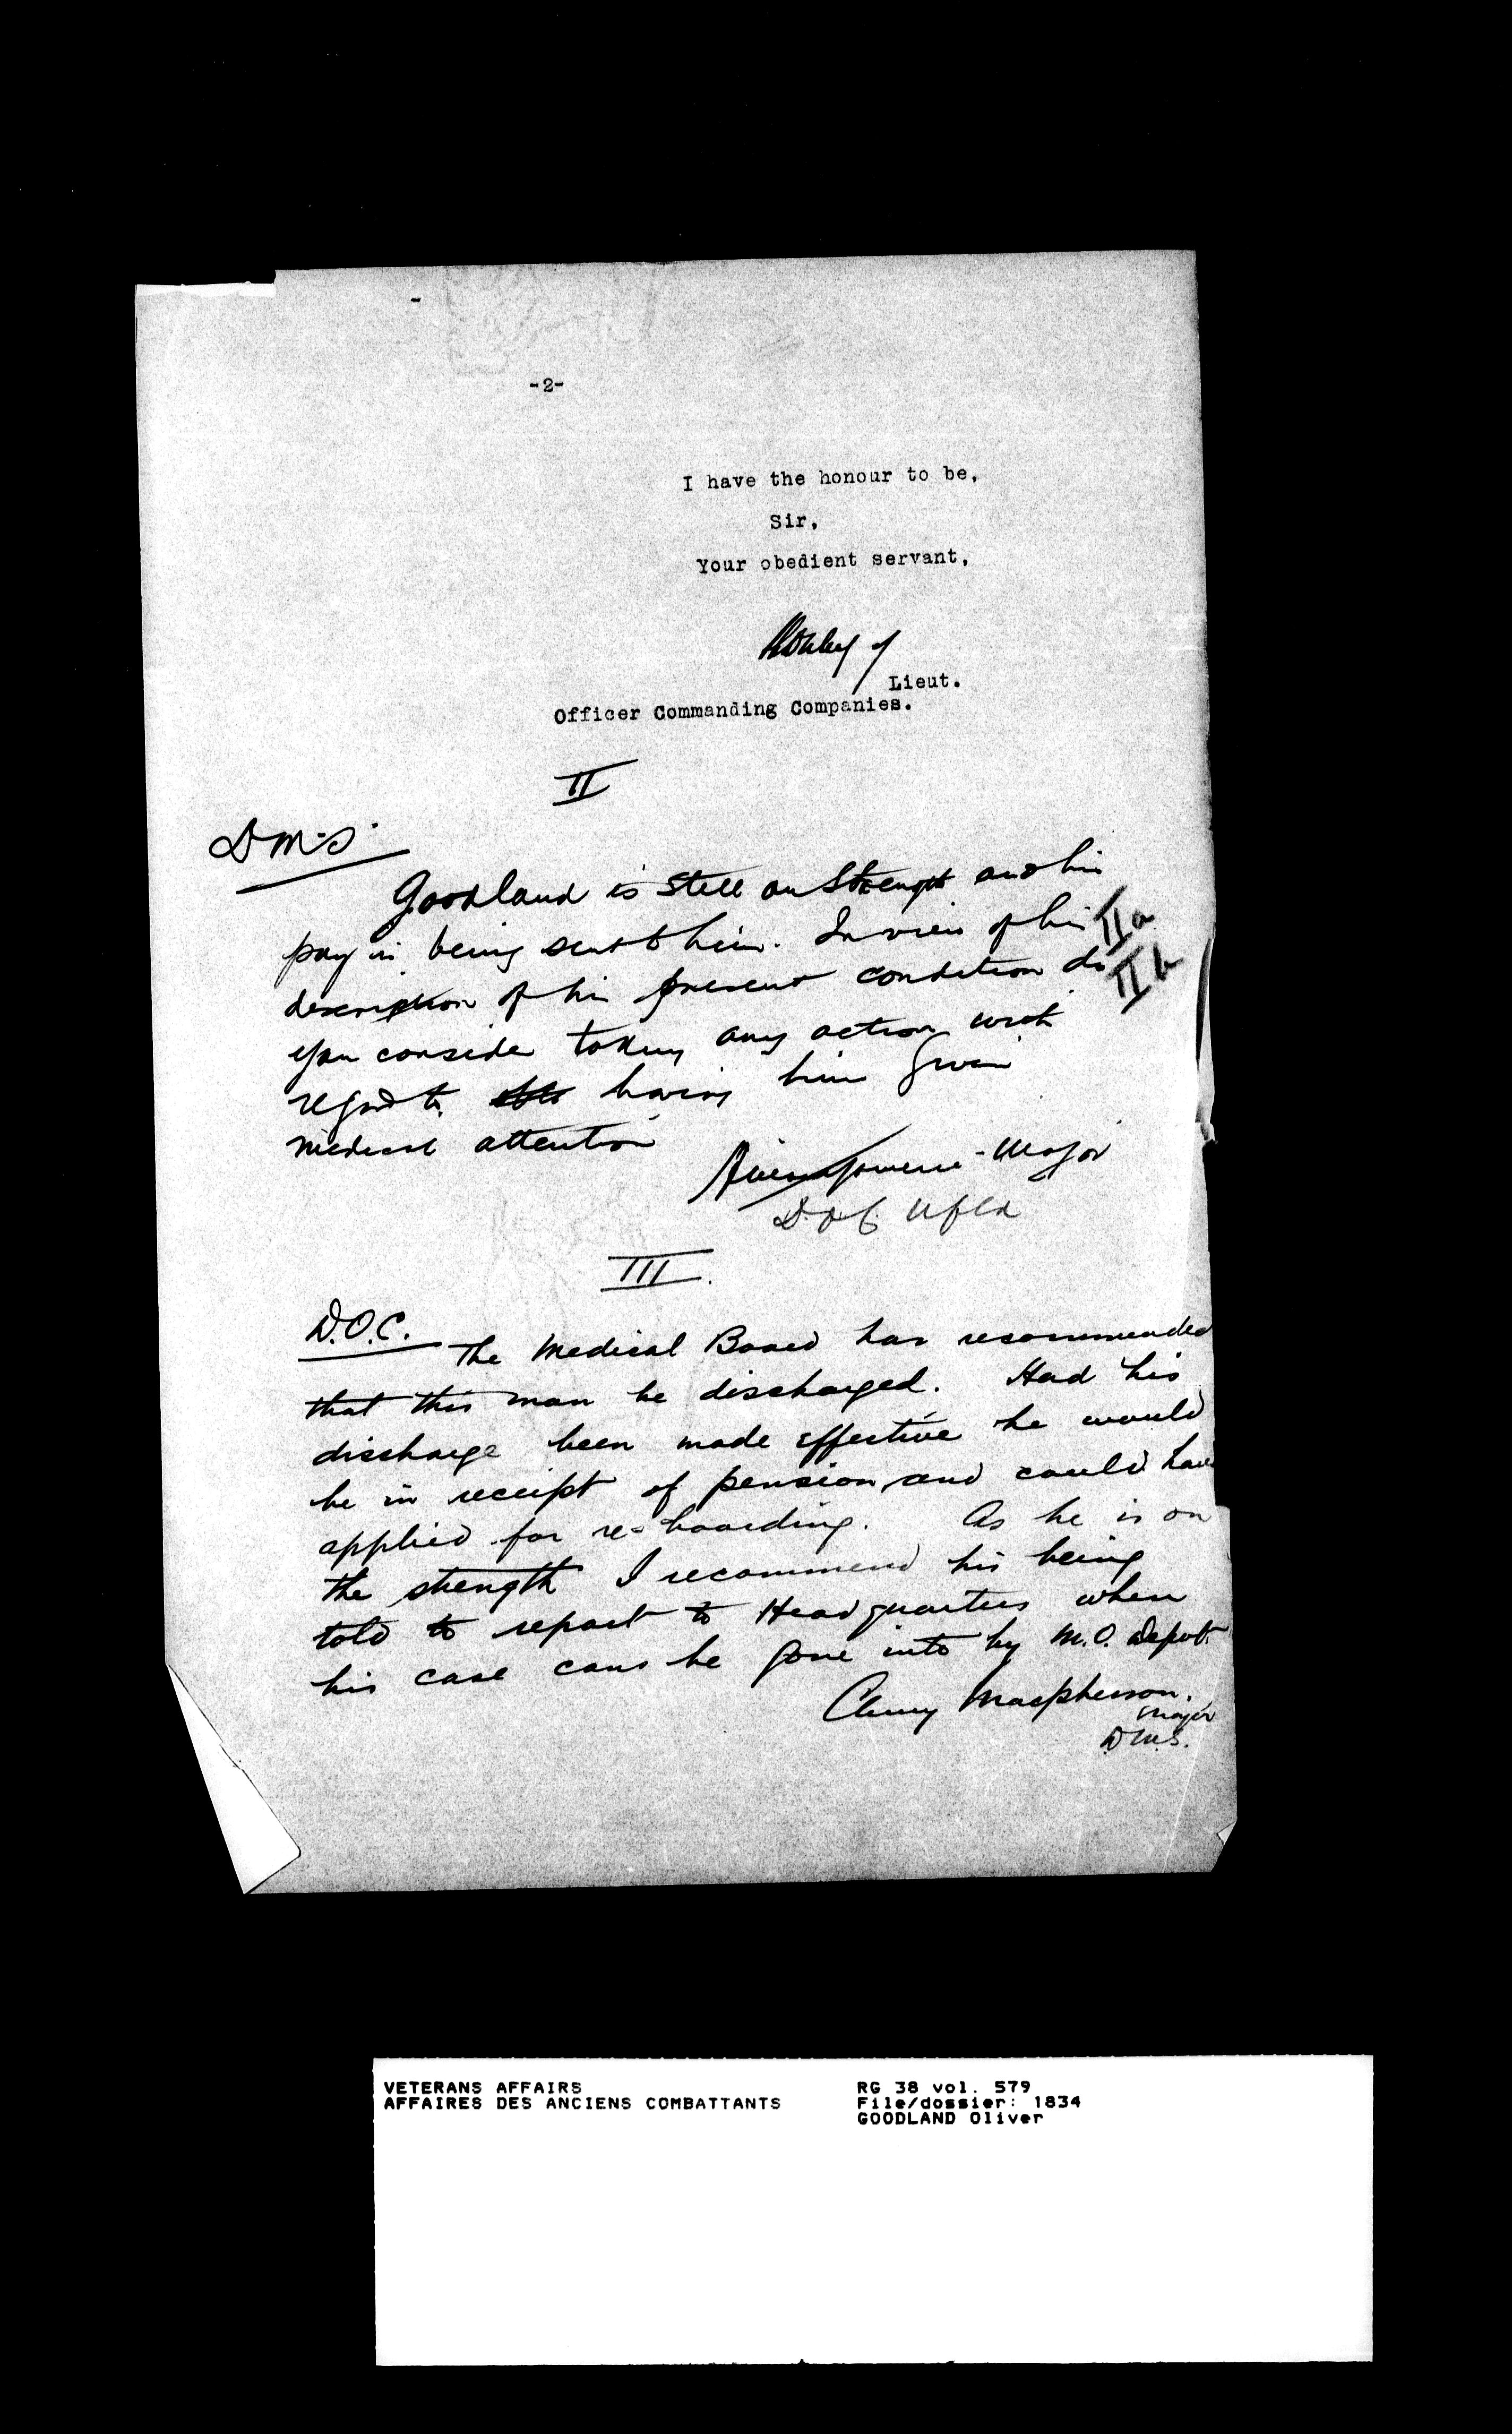 -2-
I have the honour to be,
Sir,
Your obedient servant,
Lieut.
Officer Commanding Companies.
II
D.M.S.
Goodland is still on strength and his
pay is being sent to him. In view of his
IIa
description of his present condition do
IIb
you consider taking any action with
regard to having him given
medical attention
Major
D.O.C. Nfld
III.
D.O.C. The Medical Board has recommended
that this man be discharged. Had his
discharge been made effective he would
be in receipt of pension and could have
applied for re-boarding. As he is on
the strength I recommend his being
told to report to Headquarters when
his case can be gone into by M.O. Depot.
Cluny Macpherson.
Major
D.M.S.
VETERANS AFFAIRS
AFFAIRES DES ANCIENS COMBATTANTS
RG 38 vol. 579
File/dossier: 1834
GOODLAND Oliver